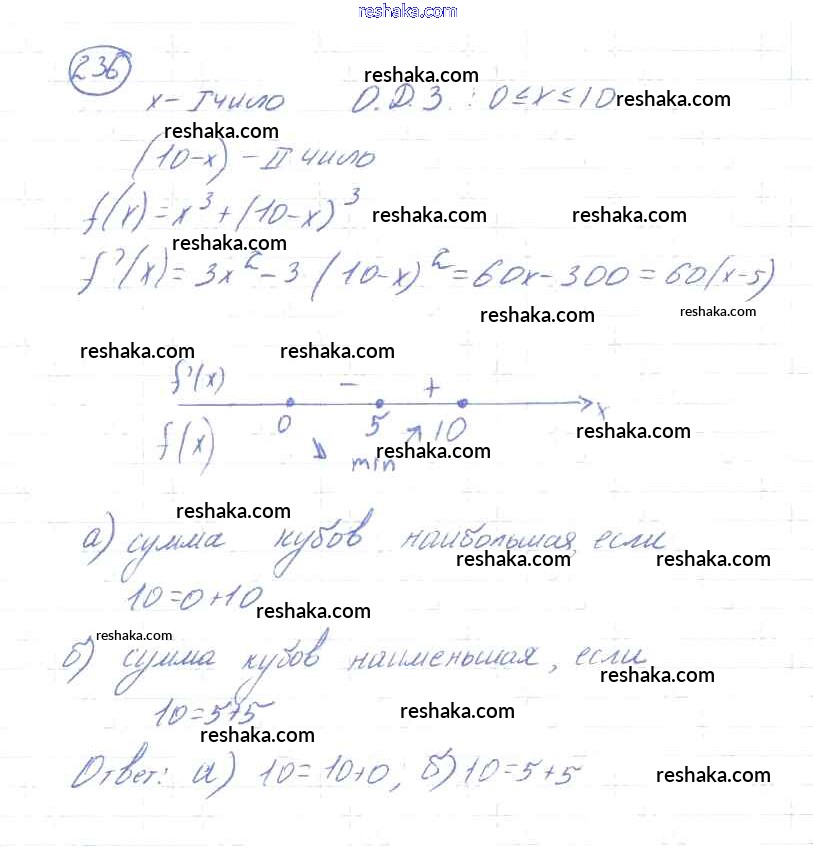 reshaka.com
236
reshaka.com
x - I число О.Д.З. : 0 ≤ x ≤ 10 reshaka.com
reshaka.com
(10-x) - II число
f(x) = x³ + (10-x)³ reshaka.com reshaka.com
reshaka.com
f'(x) = 3x² - 3(10-x)² = 60x - 300 = 60(x-5)
reshaka.com reshaka.com
reshaka.com reshaka.com
f'(x) - +
0 5 ↗ 10 x
reshaka.com
f(x) ↘ min reshaka.com
reshaka.com
а) сумма кубов наибольшая, если
reshaka.com reshaka.com
10=0+10 reshaka.com
reshaka.com
б) сумма кубов наименьшая, если
reshaka.com
10=5+5 reshaka.com
reshaka.com
Ответ: а) 10=10+0; б) 10=5+5 reshaka.com